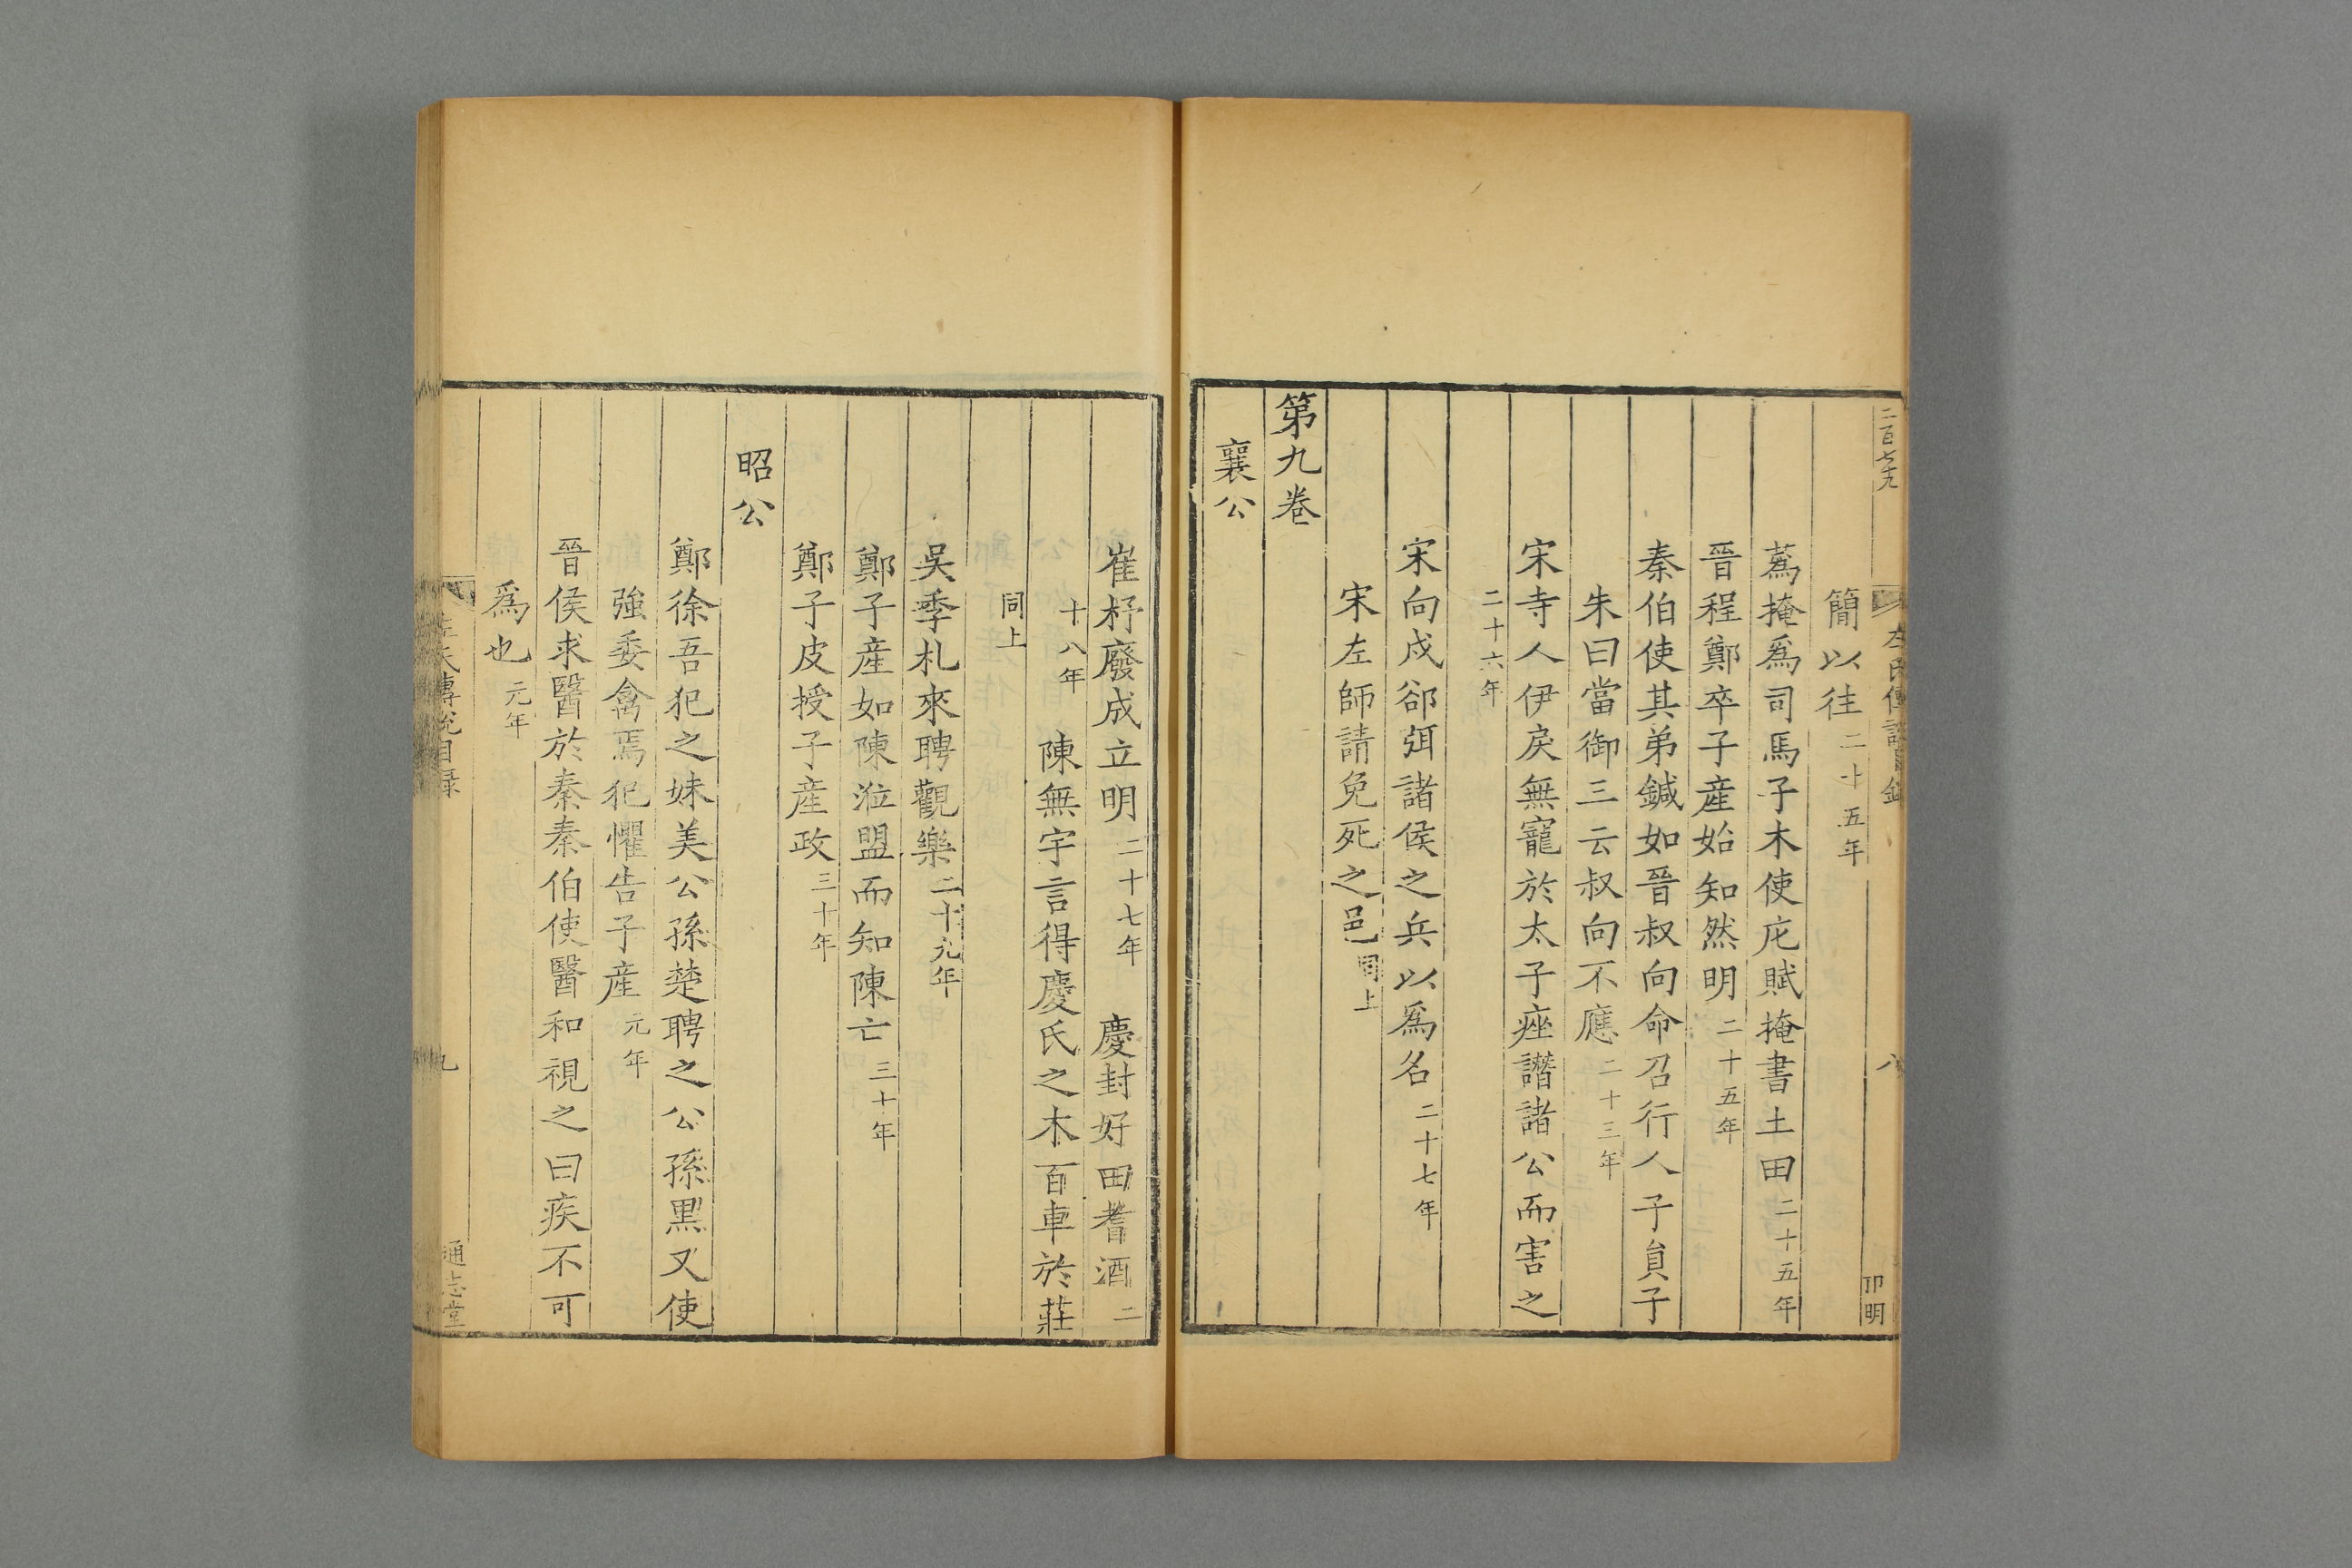 二百七十九
左氏傳說目錄
八
卬明
簡以往二十五年
蒍掩爲司馬子木使庀賦掩書土田二十五年
晉程鄭卒子産始知然明二十五年
秦伯使其弟鍼如晉叔向命召行人子員子
朱曰當御三云叔向不應二十三年
宋寺人伊戾無寵於太子痤譖諸公而害之
二十六年
宋向戌郤弭諸侯之兵以爲名二十七年
宋左師請免死之邑同上
第九卷
襄公
崔杼廢成立明二十七年 慶封好田耆酒二
十八年 陳無宇言得慶氏之木百車於莊
同上
吳季札來聘觀樂二十九年
鄭子産如陳涖盟而知陳亡三十年
鄭子皮授子産政三十年
昭公
鄭徐吾犯之妹美公孫楚聘之公孫黑又使
強委禽焉犯懼告子産元年
晉侯求醫於秦秦伯使醫和視之曰疾不可
爲也元年
左氏傳說目録
九
通志堂